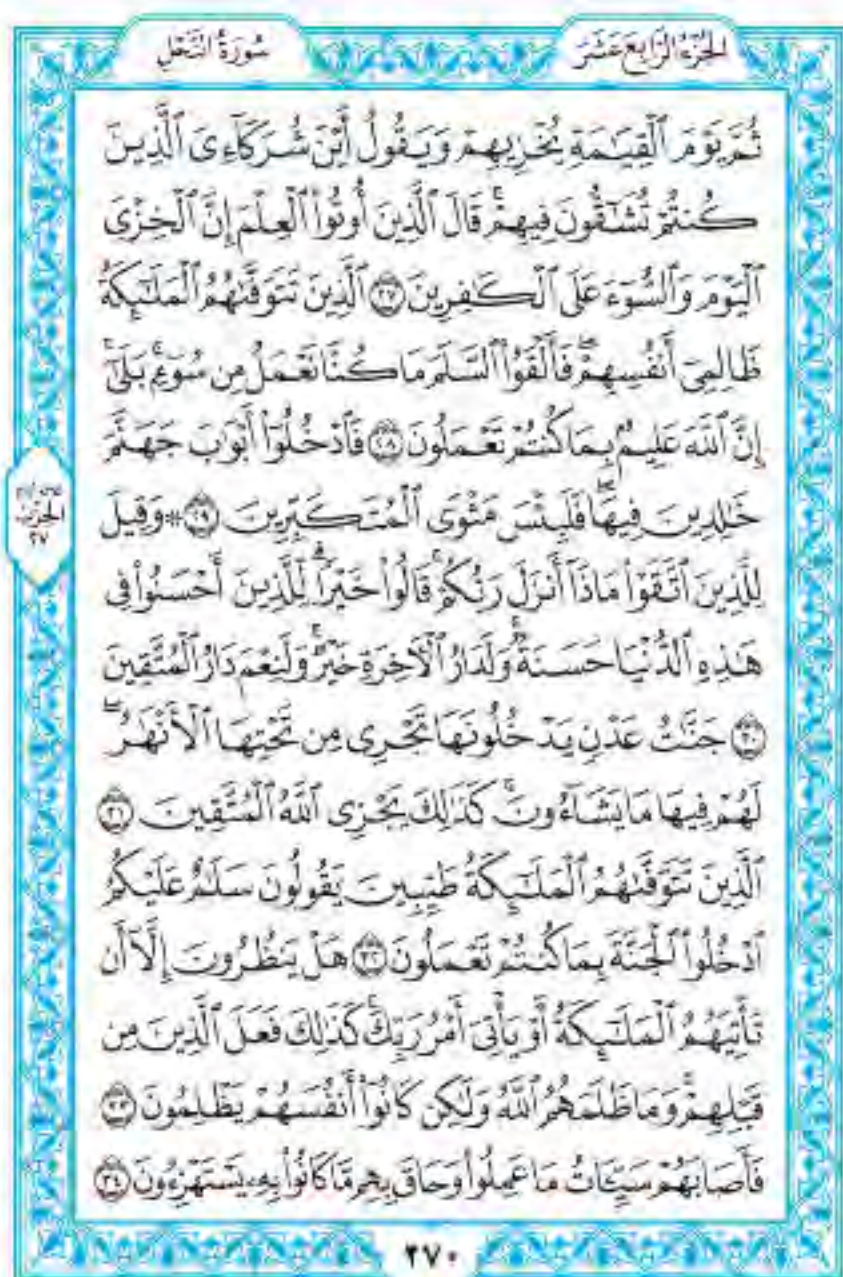 الجُزْءُ الرَّابِعَ عَشَرَ
سُورَةُ النَّحْلِ
ثُمَّ يَوْمَ ٱلْقِيَٰمَةِ يُخْزِيهِمْ وَيَقُولُ أَيْنَ شُرَكَآءِىَ ٱلَّذِينَ
كُنتُمْ تُشَٰٓقُّونَ فِيهِمْ ۚ قَالَ ٱلَّذِينَ أُوتُوا۟ ٱلْعِلْمَ إِنَّ ٱلْخِزْىَ
ٱلْيَوْمَ وَٱلسُّوٓءَ عَلَى ٱلْكَٰفِرِينَ ٢٧ ٱلَّذِينَ تَتَوَفَّىٰهُمُ ٱلْمَلَٰٓئِكَةُ
ظَالِمِىٓ أَنفُسِهِمْ ۖ فَأَلْقَوُا۟ ٱلسَّلَمَ مَا كُنَّا نَعْمَلُ مِن سُوٓءٍۭ ۚ بَلَىٰٓ
إِنَّ ٱللَّهَ عَلِيمٌۢ بِمَا كُنتُمْ تَعْمَلُونَ ٢٨ فَٱدْخُلُوٓا۟ أَبْوَٰبَ جَهَنَّمَ
خَٰلِدِينَ فِيهَا ۖ فَلَبِئْسَ مَثْوَى ٱلْمُتَكَبِّرِينَ ٢٩ ۞ وَقِيلَ
لِلَّذِينَ ٱتَّقَوْا۟ مَاذَآ أَنزَلَ رَبُّكُمْ ۚ قَالُوا۟ خَيْرًا ۗ لِّلَّذِينَ أَحْسَنُوا۟ فِى
هَٰذِهِ ٱلدُّنْيَا حَسَنَةٌ ۚ وَلَدَارُ ٱلْءَاخِرَةِ خَيْرٌ ۚ وَلَنِعْمَ دَارُ ٱلْمُتَّقِينَ
٣٠ جَنَّٰتُ عَدْنٍ يَدْخُلُونَهَا تَجْرِى مِن تَحْتِهَا ٱلْأَنْهَٰرُ ۖ
لَهُمْ فِيهَا مَا يَشَآءُونَ ۚ كَذَٰلِكَ يَجْزِى ٱللَّهُ ٱلْمُتَّقِينَ ٣١
ٱلَّذِينَ تَتَوَفَّىٰهُمُ ٱلْمَلَٰٓئِكَةُ طَيِّبِينَ ۙ يَقُولُونَ سَلَٰمٌ عَلَيْكُمُ
ٱدْخُلُوا۟ ٱلْجَنَّةَ بِمَا كُنتُمْ تَعْمَلُونَ ٣٢ هَلْ يَنظُرُونَ إِلَّآ أَن
تَأْتِيَهُمُ ٱلْمَلَٰٓئِكَةُ أَوْ يَأْتِىَ أَمْرُ رَبِّكَ ۚ كَذَٰلِكَ فَعَلَ ٱلَّذِينَ مِن
قَبْلِهِمْ ۚ وَمَا ظَلَمَهُمُ ٱللَّهُ وَلَٰكِن كَانُوٓا۟ أَنفُسَهُمْ يَظْلِمُونَ ٣٣
فَأَصَابَهُمْ سَيِّـَٔاتُ مَا عَمِلُوا۟ وَحَاقَ بِهِم مَّا كَانُوا۟ بِهِۦ يَسْتَهْزِءُونَ ٣٤
الحِزْب
٢٧
٢٧٠